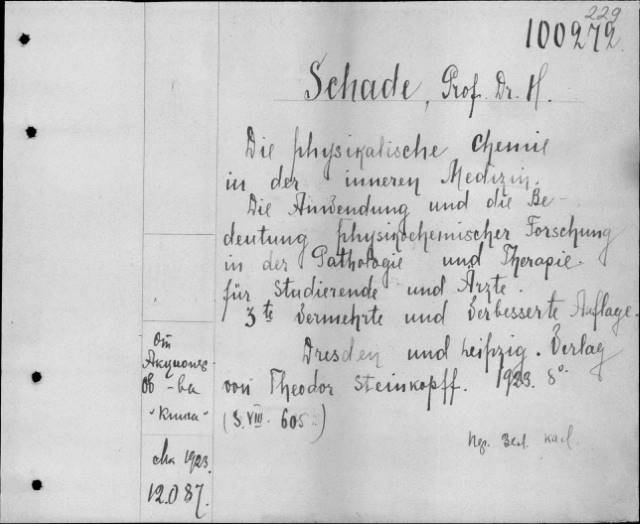 229
100272
Schade, Prof. Dr. H.
Die physikalische Chemie
in der inneren Medizin.
Die Anwendung und die Be-
deutung physikochemischer Forschung
in der Pathologie und Therapie.
für Studierende und Ärzte.
3te Vermehrte und Verbesserte Auflage.
Dresden und Leipzig. Verlag
von Theodor Steinkopff. 1923. 8o.
(S. VIII. 605.)
От
Акционер
Об-ва
"Книга"
1923.
12.087.